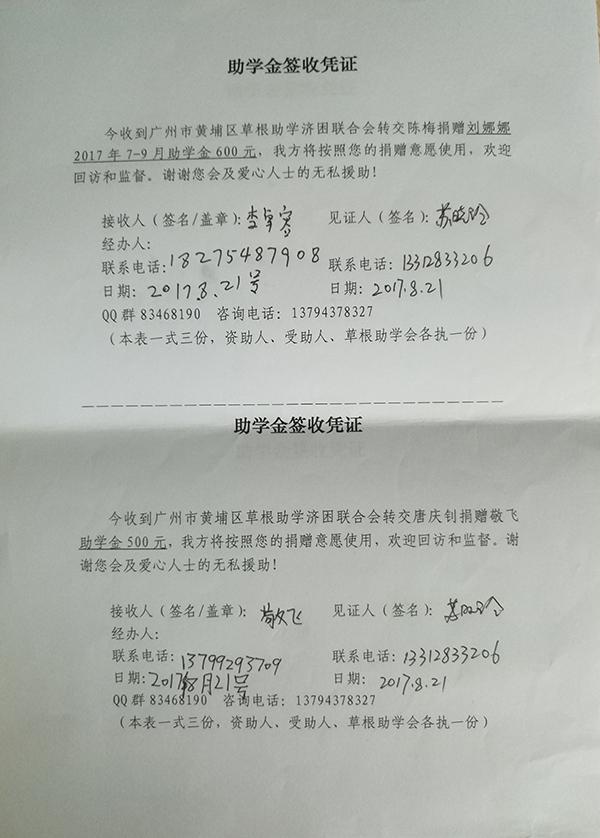 助学金签收凭证
今收到广州市黄埔区草根助学济困联合会转交陈梅捐赠刘娜娜
2017年7-9月助学金600元，我方将按照您的捐赠意愿使用，欢迎
回访和监督。谢谢您会及爱心人士的无私援助！
接收人（签名/盖章）：李卓容 见证人（签名）：苏晓玲
经办人：
联系电话：18275487908 联系电话：13312833206
日期：2017.8.21号 日期：2017.8.21
QQ群83468190 咨询电话：13794378327
（本表一式三份，资助人、受助人、草根助学会各执一份）
助学金签收凭证
今收到广州市黄埔区草根助学济困联合会转交唐庆钊捐赠敬飞
助学金500元，我方将按照您的捐赠意愿使用，欢迎回访和监督。谢
谢您会及爱心人士的无私援助！
接收人（签名/盖章）：敬飞 见证人（签名）：苏晓玲
经办人：
联系电话：13799293709 联系电话：13312833206
日期：2017年8月21号 日期：2017.8.21
QQ群83468190 咨询电话：13794378327
（本表一式三份，资助人、受助人、草根助学会各执一份）